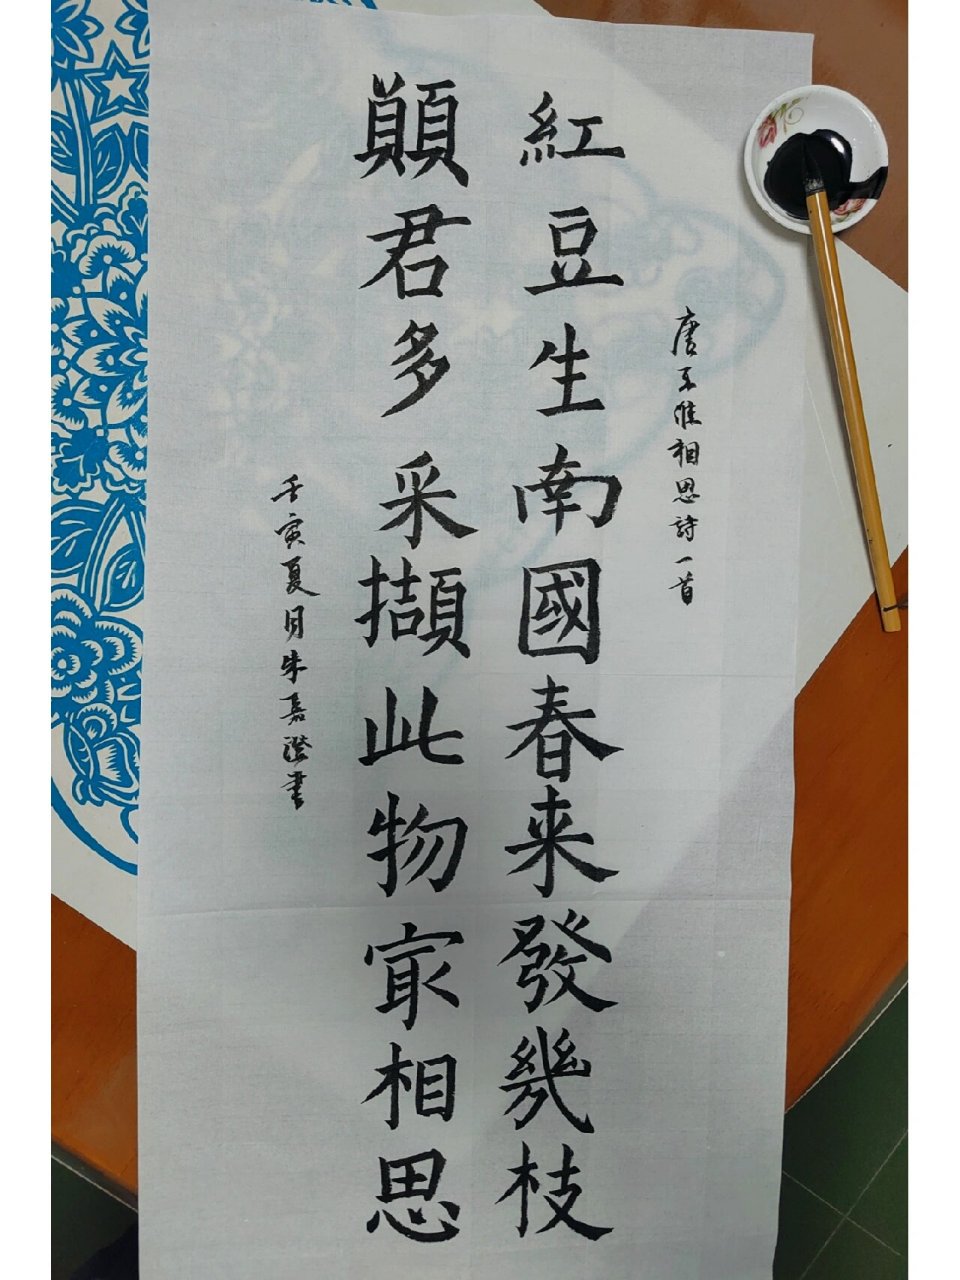 唐王維相思詩一首
紅豆生南國春来發幾枝
願君多采擷此物㝡相思
壬寅夏月朱嘉澄書